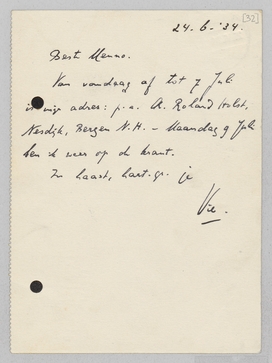 [32]
24-6-'34.
Best Menno.
Van vandaag af tot 7 Juli
is mijn adres: p.a. A. Roland Holst,
Nesdijk, Bergen N.H. – Maandag 9 Juli
ben ik weer op de krant.
In haast, hart. gr. je
Vic.